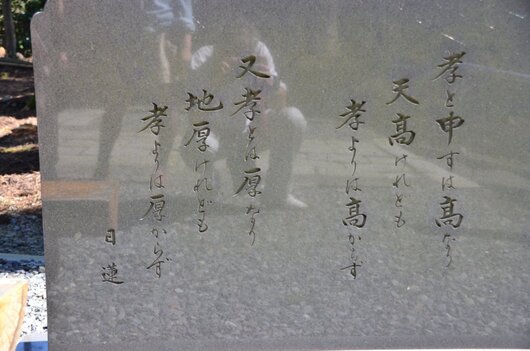 孝と申すは高なり
天高けれども
孝よりは高からず
又孝とは厚なり
地厚けれども
孝よりは厚からず
日蓮